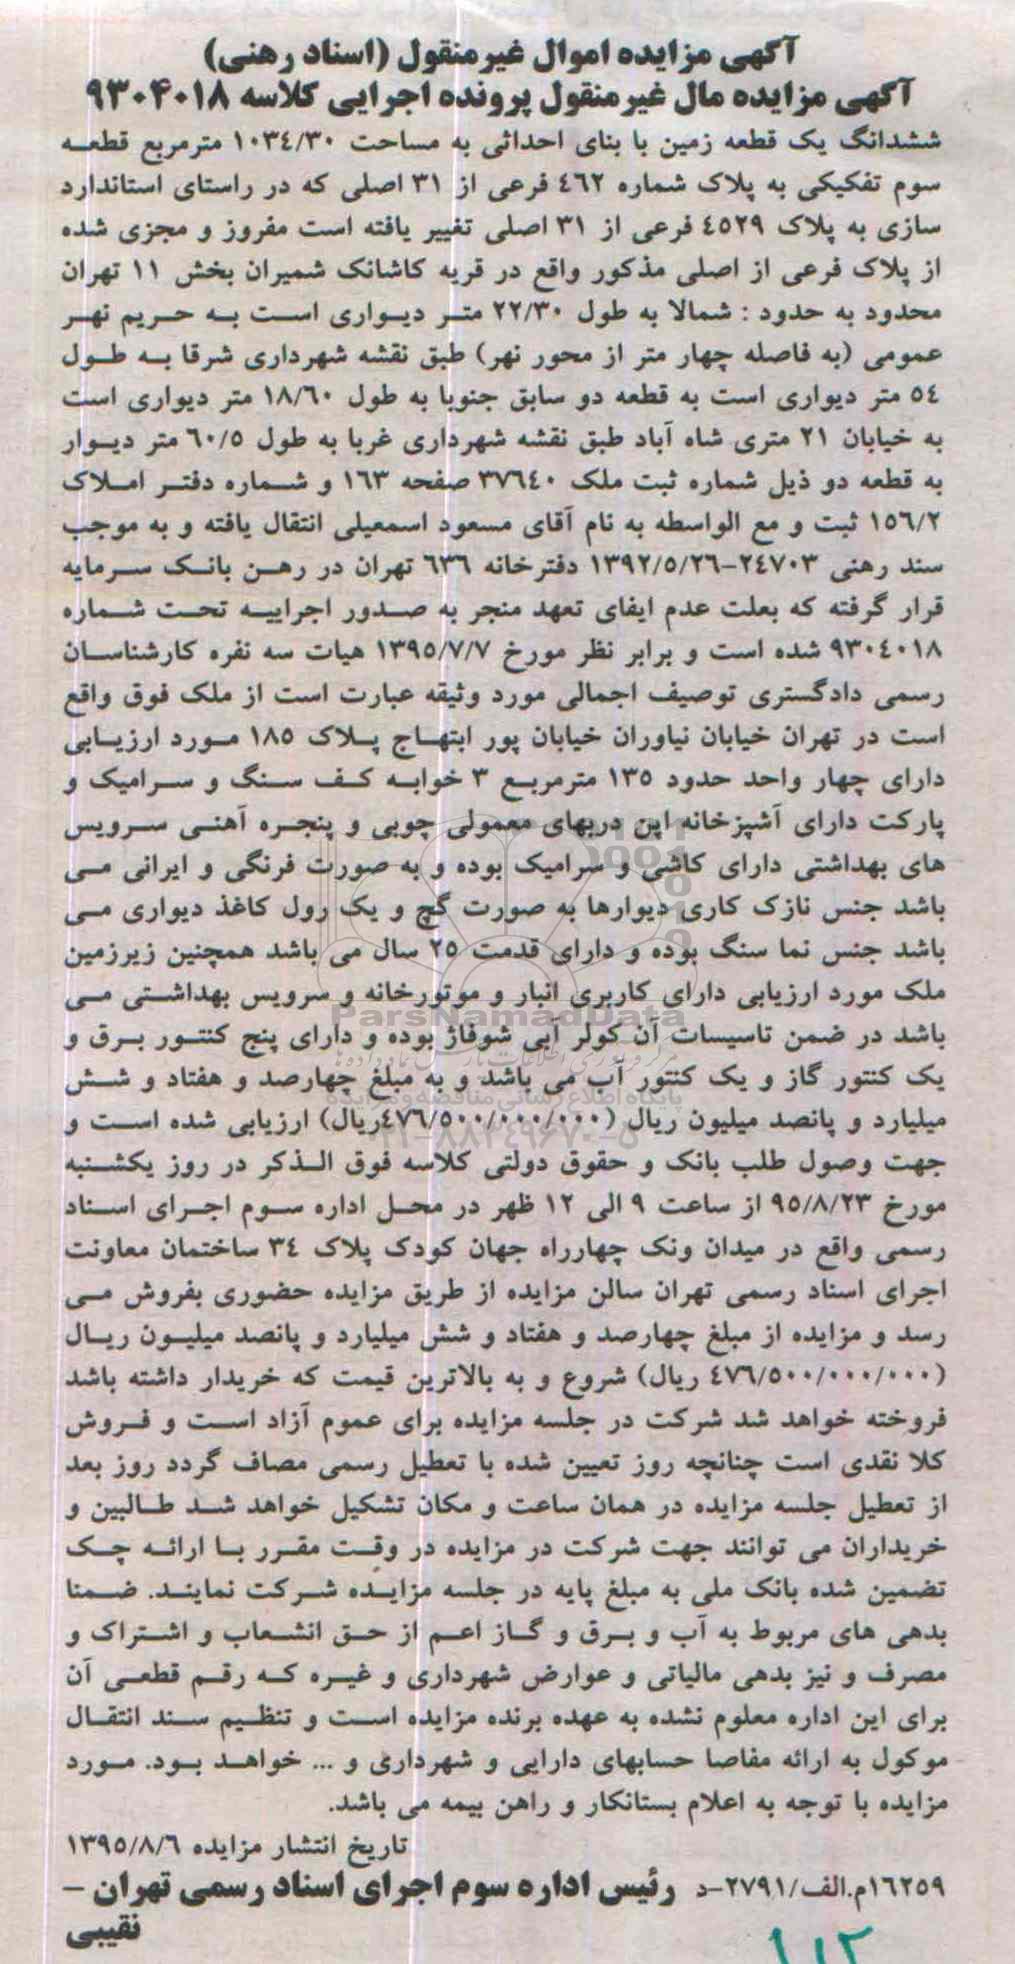 آگهی مزایده اموال غیرمنقول (اسناد رهنی)
آگهی مزایده مال غیرمنقول پرونده اجرایی کلاسه ۹۳۰۴۰۱۸
ششدانگ یک قطعه زمین با بنای احداثی به مساحت ۱۰۳۴/۳۰ مترمربع قطعه
سوم تفکیکی به پلاک شماره ۴۶۲ فرعی از ۳۱ اصلی که در راستای استاندارد
سازی به پلاک ۴۵۲۹ فرعی از ۳۱ اصلی تغییر یافته است مفروز و مجزی شده
از پلاک فرعی از اصلی مذکور واقع در قریه کاشانک شمیران بخش ۱۱ تهران
محدود به حدود : شمالا به طول ۲۲/۳۰ متر دیواری است به حریم نهر
عمومی (به فاصله چهار متر از محور نهر) طبق نقشه شهرداری شرقا به طول
۵۴ متر دیواری است به قطعه دو سابق جنوبا به طول ۱۸/۶۰ متر دیواری است
به خیابان ۲۱ متری شاه آباد طبق نقشه شهرداری غربا به طول ۶۰/۵ متر دیوار
به قطعه دو ذیل شماره ثبت ملک ۳۷۶۴۰ صفحه ۱۶۳ و شماره دفتر املاک
۱۵۶/۲ ثبت و مع الواسطه به نام آقای مسعود اسمعیلی انتقال یافته و به موجب
سند رهنی ۲۴۷۰۳-۱۳۹۲/۵/۲۶ دفترخانه ۶۳۶ تهران در رهن بانک سرمایه
قرار گرفته که بعلت عدم ایفای تعهد منجر به صدور اجراییه تحت شماره
۹۳۰۴۰۱۸ شده است و برابر نظر مورخ ۱۳۹۵/۷/۷ هیات سه نفره کارشناسان
رسمی دادگستری توصیف اجمالی مورد وثیقه عبارت است از ملک فوق واقع
است در تهران خیابان نیاوران خیابان پور ابتهاج پلاک ۱۸۵ مورد ارزیابی
دارای چهار واحد حدود ۱۳۵ مترمربع ۳ خوابه کف سنگ و سرامیک و
پارکت دارای آشپزخانه اپن دربهای معمولی چوبی و پنجره آهنی سرویس
های بهداشتی دارای کاشی و سرامیک بوده و به صورت فرنگی و ایرانی می
باشد جنس نازک کاری دیوارها به صورت گچ و یک رول کاغذ دیواری می
باشد جنس نما سنگ بوده و دارای قدمت ۲۵ سال می باشد همچنین زیرزمین
ملک مورد ارزیابی دارای کاربری انبار و موتورخانه و سرویس بهداشتی می
باشد در ضمن تاسیسات آن کولر آبی شوفاژ بوده و دارای پنج کنتور برق و
یک کنتور گاز و یک کنتور آب می باشد و به مبلغ چهارصد و هفتاد و شش
میلیارد و پانصد میلیون ریال (۴۷۶/۵۰۰/۰۰۰/۰۰۰ریال) ارزیابی شده است و
جهت وصول طلب بانک و حقوق دولتی کلاسه فوق الذکر در روز یکشنبه
مورخ ۹۵/۸/۲۳ از ساعت ۹ الی ۱۲ ظهر در محل اداره سوم اجرای اسناد
رسمی واقع در میدان ونک چهارراه جهان کودک پلاک ۳۴ ساختمان معاونت
اجرای اسناد رسمی تهران سالن مزایده از طریق مزایده حضوری بفروش می
رسد و مزایده از مبلغ چهارصد و هفتاد و شش میلیارد و پانصد میلیون ریال
(۴۷۶/۵۰۰/۰۰۰/۰۰۰ ریال) شروع و به بالاترین قیمت که خریدار داشته باشد
فروخته خواهد شد شرکت در جلسه مزایده برای عموم آزاد است و فروش
کلا نقدی است چنانچه روز تعیین شده با تعطیل رسمی مصاف گردد روز بعد
از تعطیل جلسه مزایده در همان ساعت و مکان تشکیل خواهد شد طالبین و
خریداران می توانند جهت شرکت در مزایده در وقت مقرر با ارائه چک
تضمین شده بانک ملی به مبلغ پایه در جلسه مزایده شرکت نمایند. ضمنا
بدهی های مربوط به آب و برق و گاز اعم از حق انشعاب و اشتراک و
مصرف و نیز بدهی مالیاتی و عوارض شهرداری و غیره که رقم قطعی آن
برای این اداره معلوم نشده به عهده برنده مزایده است و تنظیم سند انتقال
موکول به ارائه مفاصا حسابهای دارایی و شهرداری و ... خواهد بود. مورد
مزایده با توجه به اعلام بستانکار و راهن بیمه می باشد.
تاریخ انتشار مزایده ۱۳۹۵/۸/۶
۱۶۲۵۹م.الف/۲۷۹۱-د رئیس اداره سوم اجرای اسناد رسمی تهران -
نقیبی
ParsNamadData
پایگاه اطلاع رسانی مناقصه و مزایده
۰۲۱-۸۸۳۴۹۶۷۰-۵